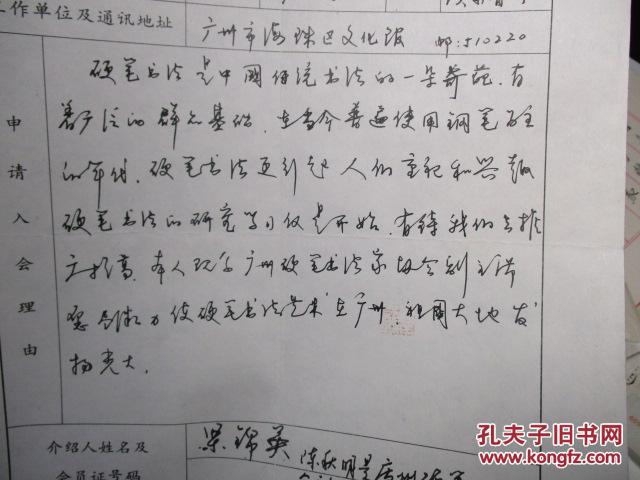 工作单位及通讯地址
广州市海珠区文化馆 邮:510220
申请入会理由
硬笔书法是中国传统书法的一朵奇葩,有
着广泛的群众基础,在当今普遍使用钢笔为主
的年代,硬笔书法更引起人们重视和兴趣
硬笔书法的研究学习仅是开始,有待我们去推
广提高,本人现为广州硬笔书法家协会
力使硬笔书法艺术在广州、祖国大地发
扬光大。
介绍人姓名及
会员证号码
梁锦英
陈秋明是广州
孔夫子旧书网